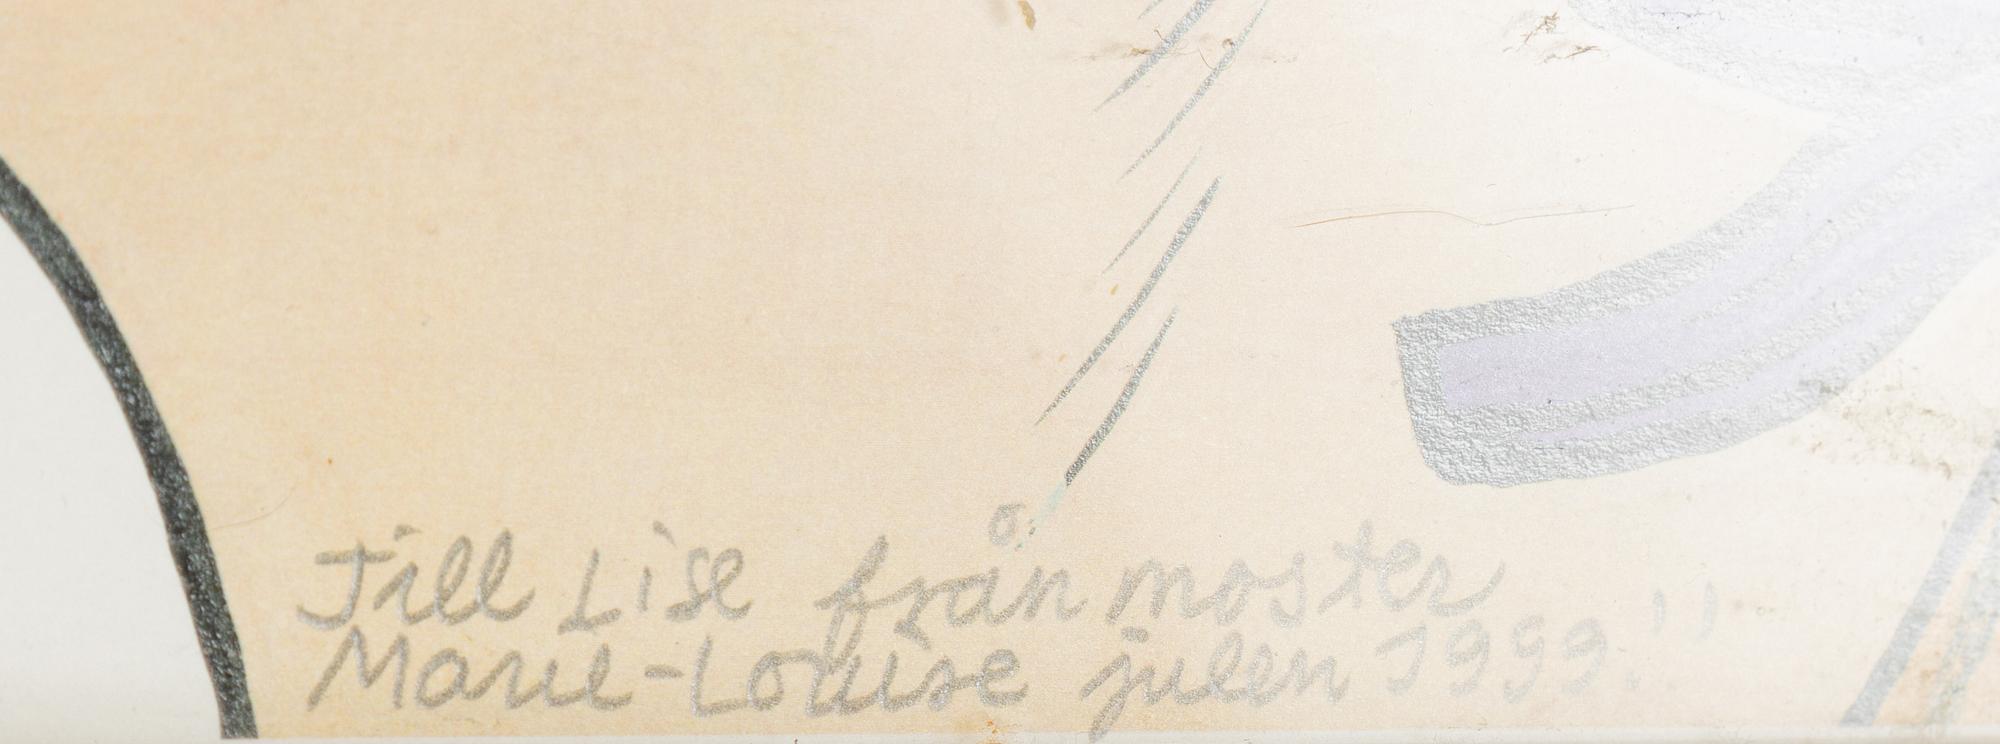 Till Lise från moster
Marie-Louise julen 1999."